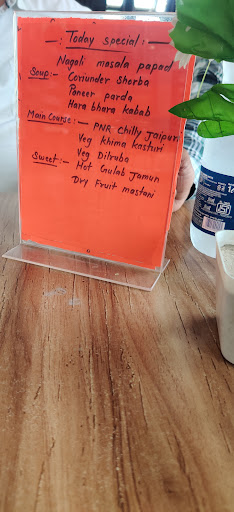 Today special:-
Nagali masala papad
Soup:- Coriunder Sherba
Paneer parda
Hara bhara kabab
Main Course:- PNR Chilly Jaipuri
Veg khima kasturi
Veg Dilruba
Sweet:- Hot Gulab Jamun
Dry Fruit mastani